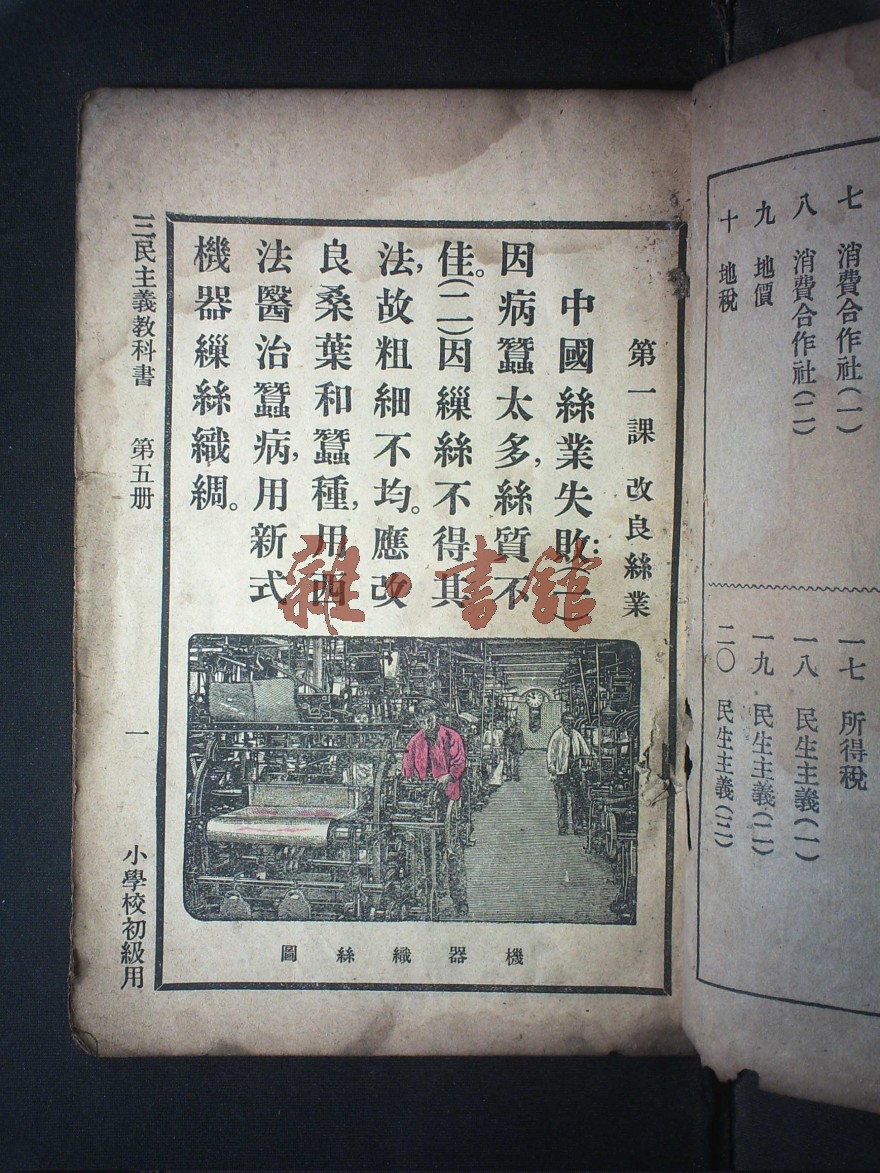 七 消費合作社(一)
八 消費合作社(二)
九 地價
十 地稅
一七 所得稅
一八 民生主義(一)
一九 民生主義(二)
二〇 民生主義(三)
第一課 改良絲業
中國絲業失敗:(一)
因病蠶太多,絲質不
佳。(二)因繅絲不得其
法,故粗細不均。應改
良桑葉和蠶種,用西
法醫治蠶病,用新式
機器繅絲織綢。
機器織絲圖
三民主義教科書 第五册 一 小學校初級用
雜·書館